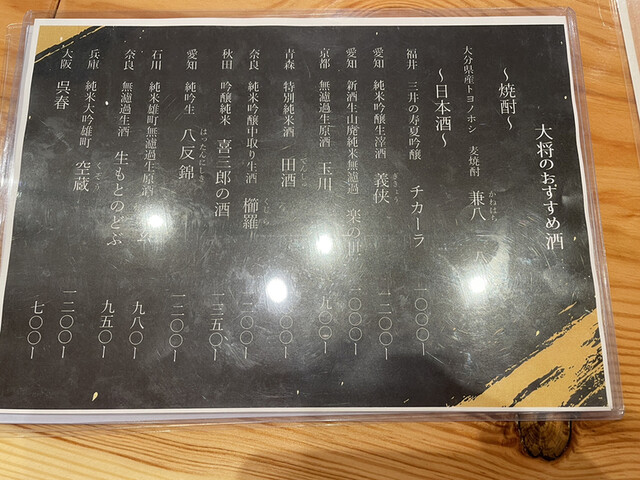 大将のおすすめ酒
～焼酎～
大分県産トヨノホシ 麦焼酎 兼八 かねはち
～日本酒～
福井 三井の寿夏吟醸 チカーラ 一〇〇〇-
愛知 純米吟醸生滓酒 義侠 ぎきょう 一二〇〇-
愛知 新酒生山廃純米無濾過 楽の世 一〇〇〇-
京都 無濾過生原酒 玉川 九〇〇-
青森 特別純米酒 田酒 でんしゅ 〇〇-
奈良 純米吟醸中取り生酒 櫛羅 くじら 一二〇〇-
秋田 吟醸純米 喜三郎の酒 一三五〇-
愛知 純吟生 八反錦 はったんにしき 一二〇〇-
石川 純米雄町無濾過生原酒 九八〇-
奈良 無濾過生酒 生もとのどぶ 九五〇-
兵庫 純米大吟雄町 空蔵 くぞう 一二〇〇-
大阪 呉春 七〇〇-